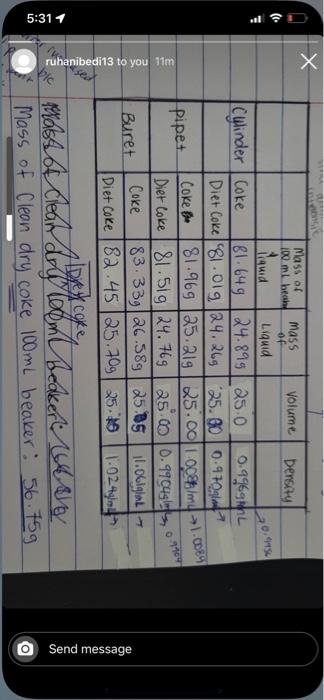 5:31
ruhanibedi13 to you 11m
Mass of 100 mL beaker + liquid
Mass of liquid
Volume
Density
Cylinder Coke 81.64g 24.89g 25.0 0.996g/mL → 0.9956
Diet Coke 81.01g 24.26g 25.00 0.970g/mL →
Pipet Coke 81.96g 25.21g 25.00 1.008g/mL → 1.0084
Diet Coke 81.51g 24.76g 25.00 0.9904g/mL → 0.9904
Buret Coke 83.33g 26.58g 1.061g/mL →
Diet Coke 82.45 25.70g 1.02g/mL →
Mass of Clean dry 100ml beaker:
Mass of Clean dry coke 100mL beaker: 56.75g
Send message